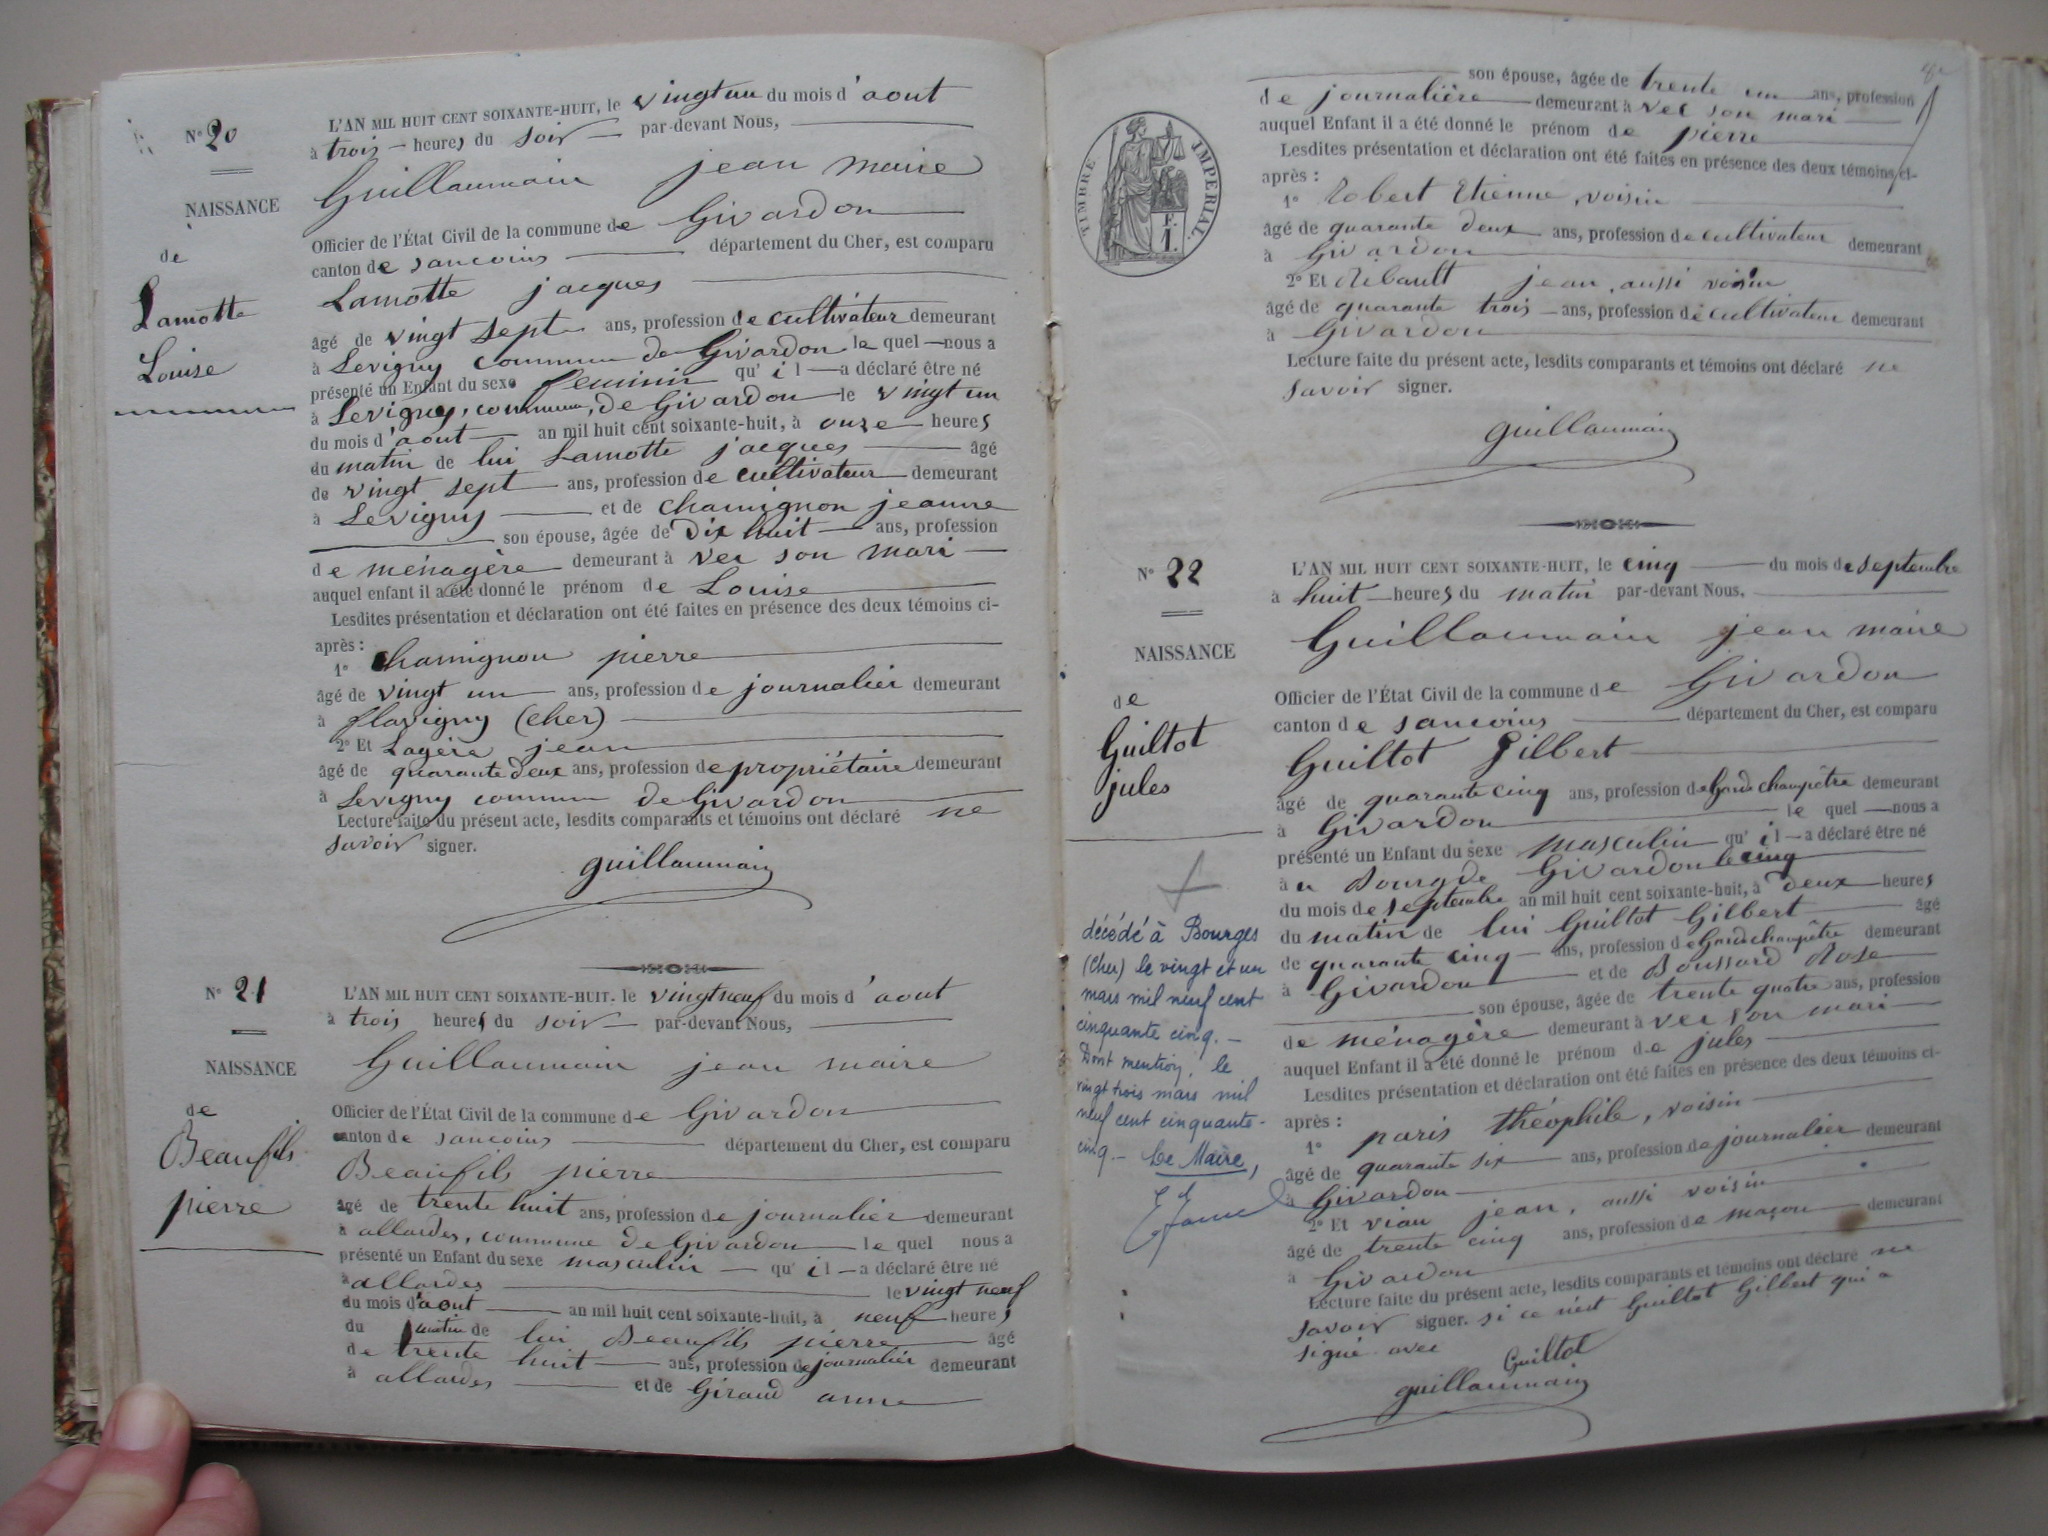 N° 20
NAISSANCE
de
Lamotte
Louise
L'AN MIL HUIT CENT SOIXANTE-HUIT, le vingt un du mois d'aout
à trois heures du soir par-devant Nous,
Guillaumain jean maire
Officier de l'État Civil de la commune de Givardon
canton de sancoins département du Cher, est comparu
Lamotte jacques
âgé de vingt sept ans, profession de cultivateur demeurant
à Sevigny commune de Givardon le quel nous a
présenté un Enfant du sexe feminin qu'il a déclaré être né
à Sevigny, commune, de Givardon le vingt un
du mois d'aout an mil huit cent soixante-huit, à onze heures
du matin de lui Lamotte jacques âgé
de vingt sept ans, profession de cultivateur demeurant
à Sevigny et de chamignon jeanne
son épouse, âgée de Dix huit ans, profession
de ménagère demeurant à vec son mari
auquel enfant il a été donné le prénom de Louise
Lesdites présentation et déclaration ont été faites en présence des deux témoins ci-
après :
1° chamignon pierre
âgé de vingt un ans, profession de journalier demeurant
à flavigny (cher)
2° Et Lagère jean
âgé de quarante deux ans, profession de propriétaire demeurant
à Sevigny commune de Givardon
Lecture faite du présent acte, lesdits comparants et témoins ont déclaré ne
savoir signer.
guillaumain
N° 21
NAISSANCE
de
Beaufils
pierre
L'AN MIL HUIT CENT SOIXANTE-HUIT. le vingt neuf du mois d'aout
à trois heures du soir par-devant Nous,
Guillaumain jean maire
Officier de l'État Civil de la commune de Givardon
canton de sancoins département du Cher, est comparu
Beaufils pierre
âgé de trente huit ans, profession de journalier demeurant
à allardes, commune de Givardon le quel nous a
présenté un Enfant du sexe masculin qu'il a déclaré être né
à allardes le vingt neuf
du mois d'aout an mil huit cent soixante-huit, à neuf heures
du matin de lui Beaufils pierre âgé
de trente huit ans, profession de journalier demeurant
à allardes et de Giraud anne
TIMBRE IMPERIAL.
F.
1.
son épouse, âgée de trente un ans, profession
de journalière demeurant à vec son mari
auquel Enfant il a été donné le prénom de pierre
Lesdites présentation et déclaration ont été faites en présence des deux témoins ci-
après :
1° Robert Etienne, voisin
âgé de quarante deux ans, profession de cultivateur demeurant
à Givardon
2° Et Rebault jean, aussi voisin
âgé de quarante trois ans, profession de cultivateur demeurant
à Givardon
Lecture faite du présent acte, lesdits comparants et témoins ont déclaré ne
savoir signer.
guillaumain
N° 22
NAISSANCE
de
Guiltot
jules
décédé à Bourges
(Cher) le vingt et un
mars mil neuf cent
cinquante cinq. -
Dont mention, le
vingt trois mars mil
neuf cent cinquante-
cinq - Le Maire,
L'AN MIL HUIT CENT SOIXANTE-HUIT, le cinq du mois de septembre
à huit heures du matin par-devant Nous,
Guillaumain jean maire
Officier de l'État Civil de la commune de Givardon
canton de sancoins département du Cher, est comparu
Guiltot Gilbert
âgé de quarante cinq ans, profession de Garde champêtre demeurant
à Givardon le quel nous a
présenté un Enfant du sexe masculin qu'il a déclaré être né
à u Bourg de Givardon le cinq
du mois de septembre an mil huit cent soixante-huit, à deux heures
du matin de lui Guiltot Gilbert âgé
de quarante cinq ans, profession de Garde champêtre demeurant
à Givardon et de Boussard Rose
son épouse, âgée de trente quatre ans, profession
de ménagère demeurant à vec son mari
auquel Enfant il a été donné le prénom de jules
Lesdites présentation et déclaration ont été faites en présence des deux témoins ci-
après :
1° paris théophile, voisin
âgé de quarante six ans, profession de journalier demeurant
à Givardon
2° Et viau jean, aussi voisin
âgé de trente cinq ans, profession de maçon demeurant
à Givardon
Lecture faite du présent acte, lesdits comparants et témoins ont déclaré ne
savoir signer. si ce n'est Guiltot Gilbert qui a
signé avec
Guiltot
guillaumain